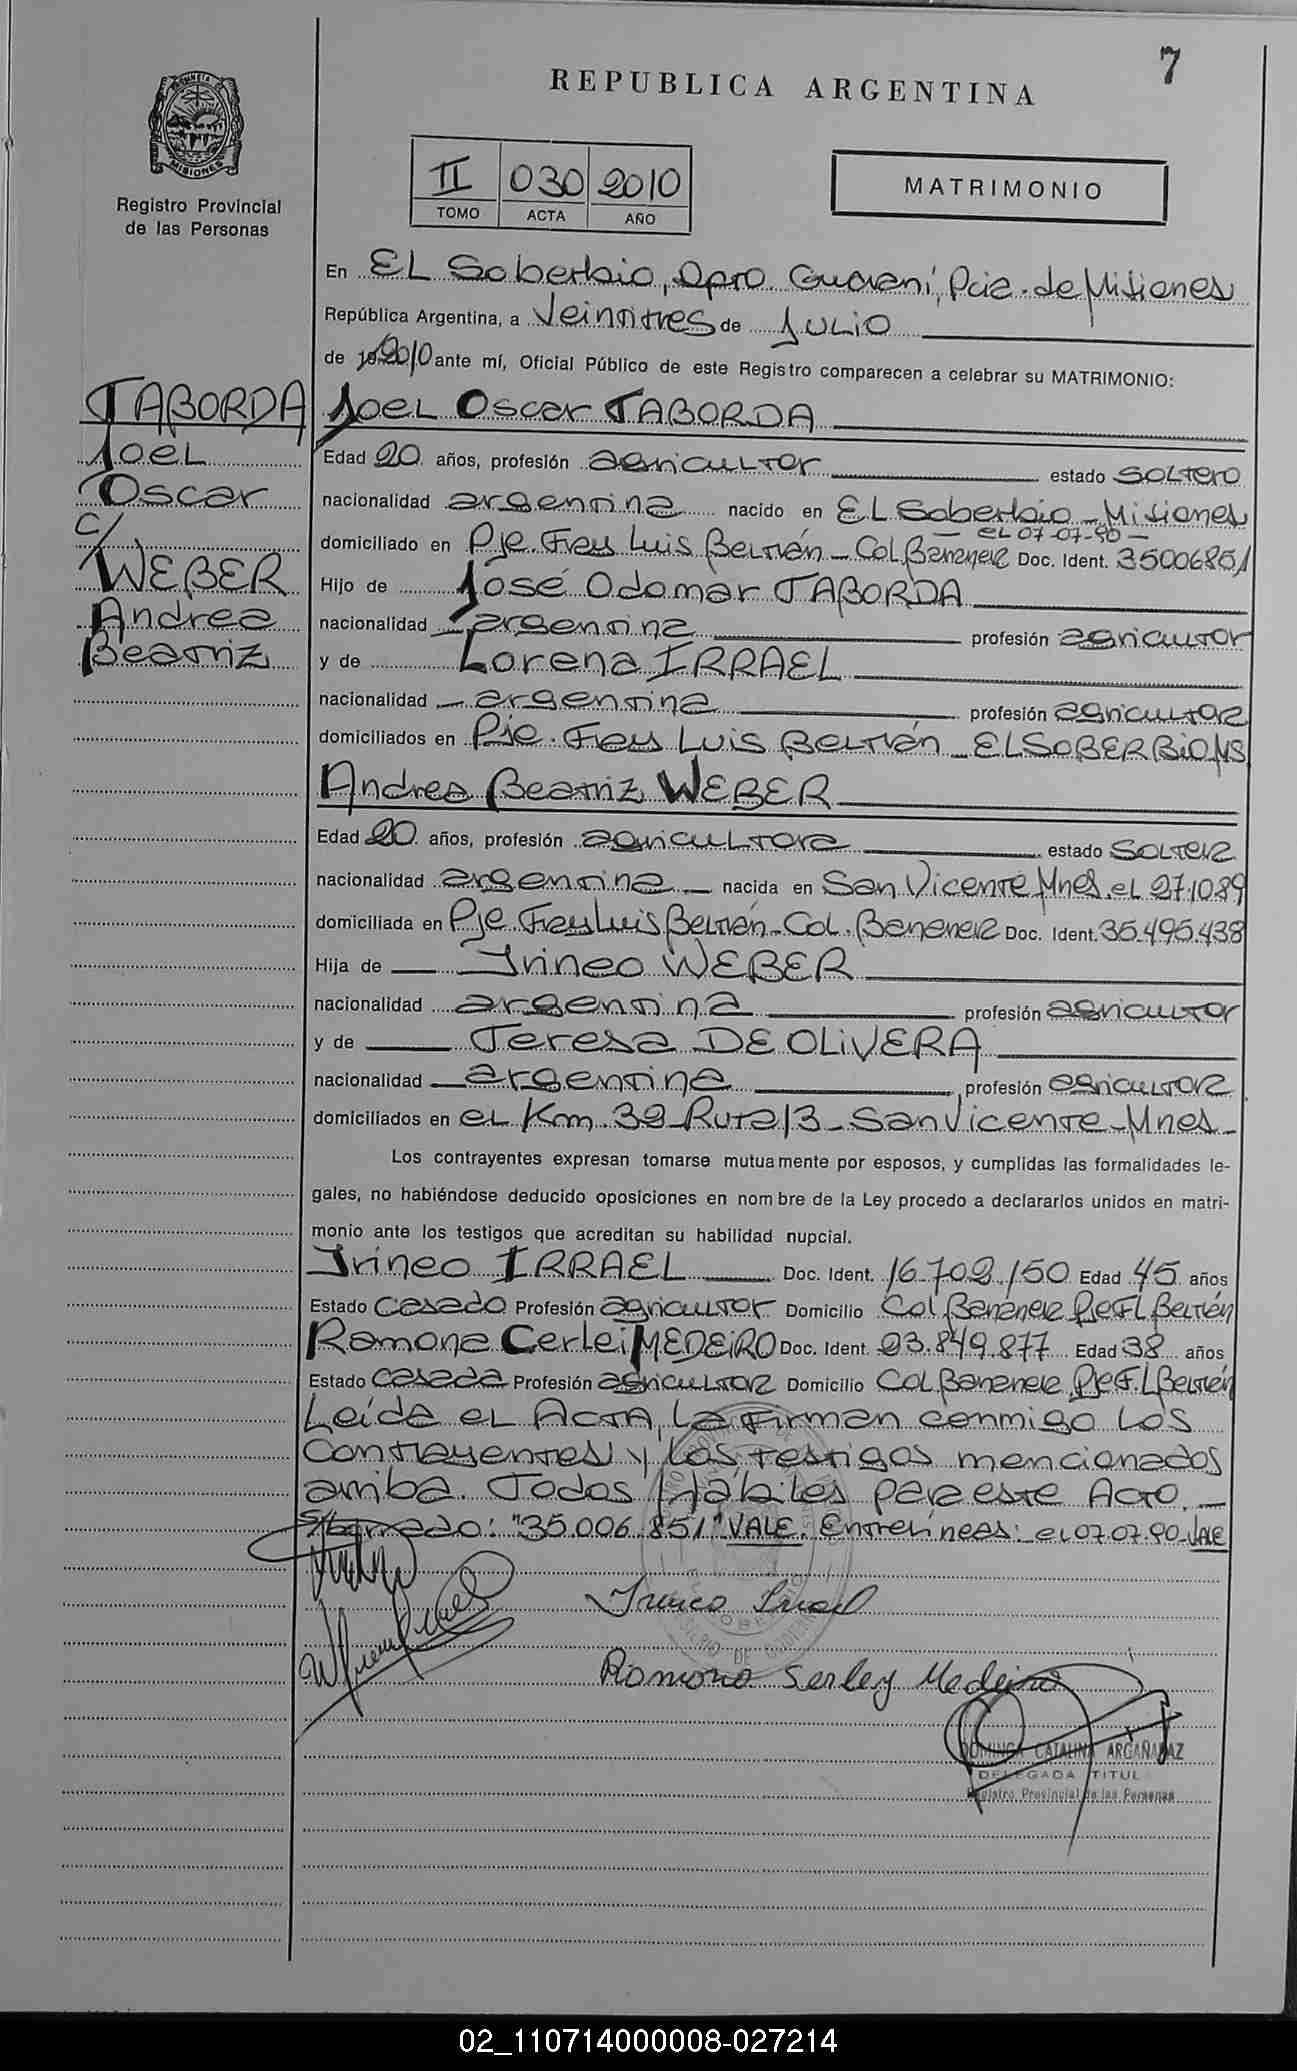 7
REPUBLICA ARGENTINA
PROVINCIA DE
MISIONES
Registro Provincial
de las Personas
II 030 2010
TOMO ACTA AÑO
MATRIMONIO
En EL Soberbio, Dpto. Guaraní, Pcia. de Misiones
República Argentina, a Veintitres de JULIO
de 2010 ante mí, Oficial Público de este Registro comparecen a celebrar su MATRIMONIO:
TABORDA
Joel
Oscar
c/
WEBER
Andrea
Beatriz
Joel Oscar TABORDA
Edad 20 años, profesión agricultor estado SOLTERO
nacionalidad argentina nacido en EL Soberbio - Misiones
- EL 07-07-90 -
domiciliado en Pje. Fray Luis Beltrán - Col. Bananera Doc. Ident. 35006851
Hijo de José Odomar TABORDA
nacionalidad argentina profesión agricultor
y de Lorena IRRAEL
nacionalidad argentina profesión agricultora
domiciliados en Pje. Fray Luis Beltrán - EL SOBERBIO, MS
Andrea Beatriz WEBER
Edad 20 años, profesión agricultora estado SOLTERA
nacionalidad argentina nacida en San Vicente Mnes, el 27.10.89
domiciliada en Pje. Fray Luis Beltrán - Col. Bananera Doc. Ident. 35.495.438
Hija de Irineo WEBER
nacionalidad argentina profesión agricultor
y de Teresa DE OLIVERA
nacionalidad argentina profesión agricultora
domiciliados en el Km. 39 Ruta 13 - San Vicente - Mnes -
Los contrayentes expresan tomarse mutuamente por esposos, y cumplidas las formalidades le-
gales, no habiéndose deducido oposiciones en nombre de la Ley procedo a declararlos unidos en matri-
monio ante los testigos que acreditan su habilidad nupcial.
Irineo IRRAEL Doc. Ident. 16.709.150 Edad 45 años
Estado Casado Profesión agricultor Domicilio Col Bananera Pje F.L Beltrán
Ramona Cerlei MEDEIRO Doc. Ident. 23.849.877 Edad 38 años
Estado Casada Profesión agricultora Domicilio Col Bananera, Pje F.L Beltrán
Leída el Acta, la firman conmigo los
Contrayentes y los testigos mencionados
arriba. Todos hábiles para este Acto. -
S/borrado: "35.006.851" VALE. Entrelíneas: el 07.07.90 VALE
Irineo Irrael
Ramona Serley Medeiro
DOMINGA CATALINA ARGAÑARAZ
DELEGADA TITUL
Registro Provincial de las Personas
02_110714000008-027214